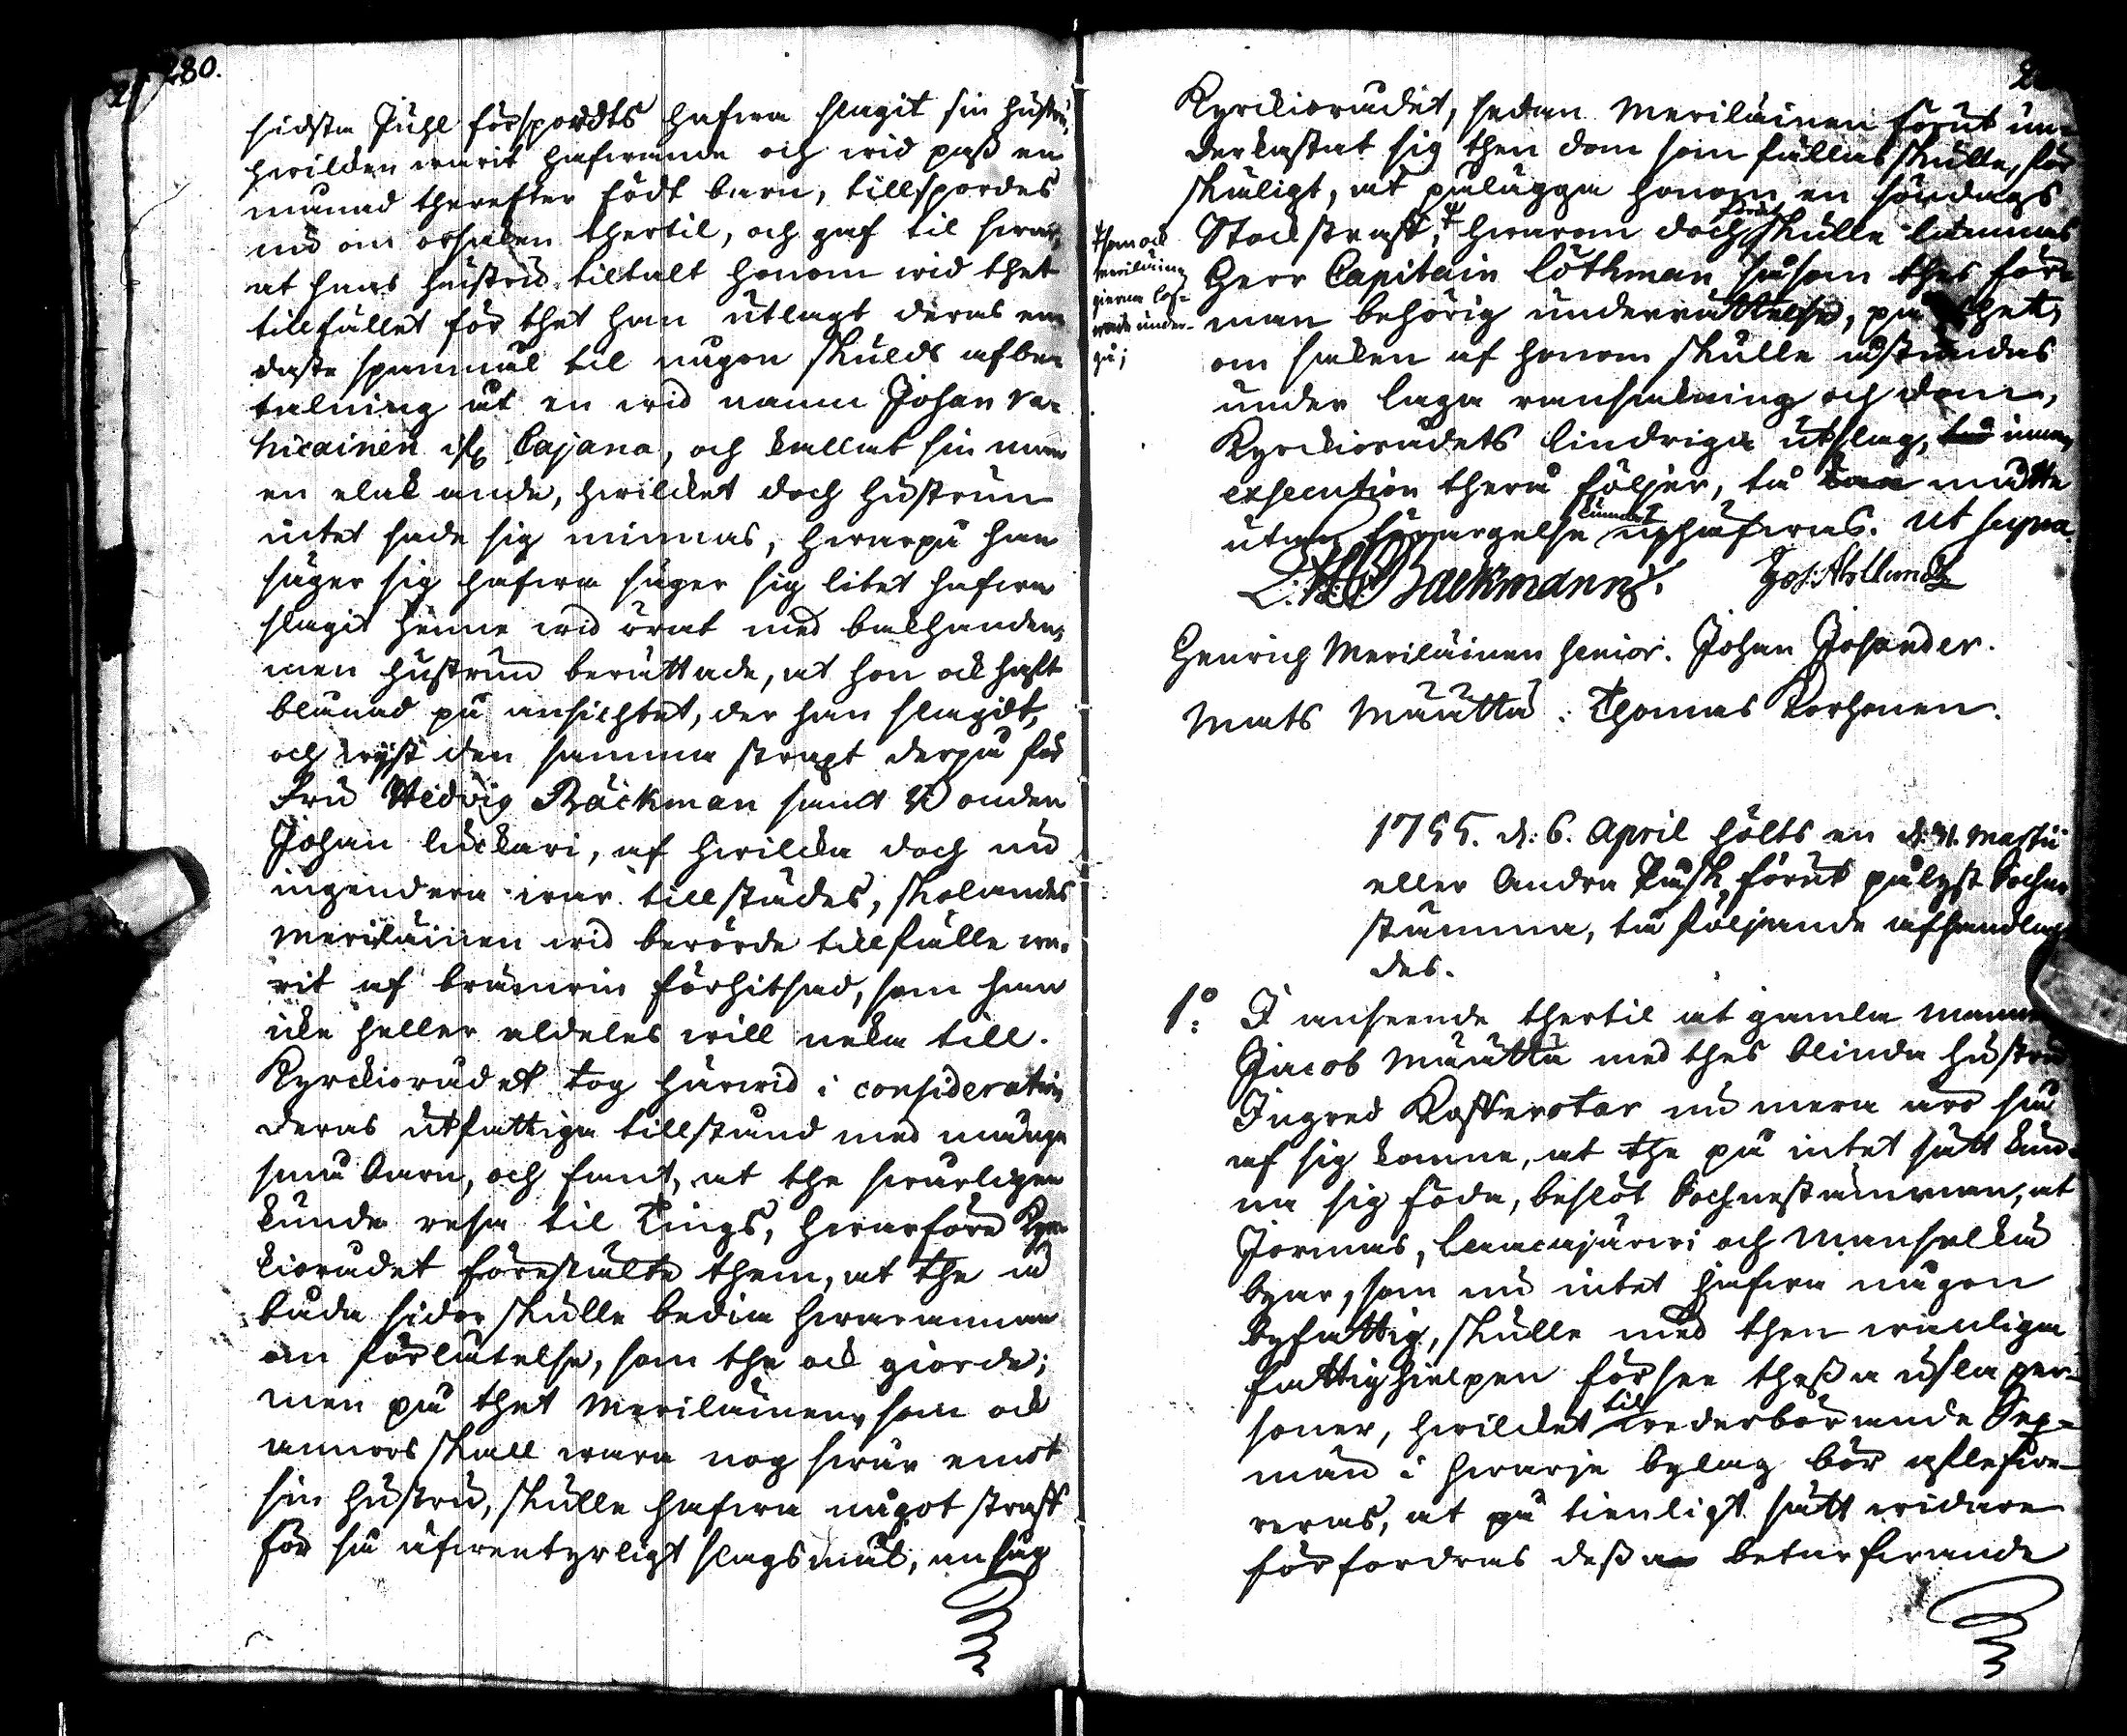 280.
sidsta Juhl förspordts hafwa slagit sin hustru,
hwilken warit hafwande och wid paß en
månad therefter födt barn, tillspordes
nu om orsaken thertil, och gaf til swar,
at hans hustru tiltalt honom wid thet
tillfället för thet han utlagt deras en-
daste spannmål til någon skulds afbe-
talning åt en wid namn Johan Va-
hicainen ifr. Cajana, och kallat sin man
en elak ande, hwilket doch hustrun
intet sade sig minnas, hwarpå han
säger sig hafwa säger sig litet hafwa
slagit henne wid örat med bakhanden,
men hustrun berättade, at hon ock haft
blånad på ansichtet, der han slagidt,
och wyst den samma straxt derpå för
Fru Hedvig Bäckman samt Bonden
Johan Luckari, af hwilka doch nu
ingendera war tillstädes, skolandes
Meriläinen wid berörde tillfälle wa-
rit af bränwin förhitsad, som han
icke heller aldeles will neka till.
Kyrckiorådet tog härwid i consideration
deras utfattiga tillstånd med många
små barn, och fant, at the swårligen
kunde resa til Tings, hwarföre Kyr-
kiorådet förestälte them, at the å
båda sidor skulle bedia hwarannan
om förlåtelse, som the ock giorde;
men på thet Meriläinen, som ock
annors skall wara nog swår emot
sin hustru, skulle hafwa något straff
för så äfwentyrligt slagsmål, ansåg
Kyrckiorådet, sedan Meriläinen förut un-
derkastat sig then dom som fällas skulle, för
skäligt, at pålägga honom en söndags
Stockstraff, hwarom doch förut skulle lemnas
Them ock
Meriläinen
gierna lof-
wade under-
gå;
Herr Capitain Löthman, såsom thes för-
man behörig underrättelse, på thet,
om saken af honom skulle åstundas
under laga ransakning och dom,
Kyrckiorådets lindriga utslag, innan
execution therå följer, tå måtte
utan förargelse kunna uphäfwas. Ut supra.
Backmann. Jos: Ahllund
Henrich Meriläinen senior. Johan Josander.
Mats Määttä. Thomas Korhonen.
1755. d: 6. April hölts en d: 31. Martii
eller Andra Påsk. förut pålyst Sochne
stämma, tå följande afhandla-
des.
1:o I anseende thertil at gamla mannen
Jacob Määttä med thes blinda hustru
Ingred Kofferotar nu mera äro så
af sig komne, at the på intet sätt kun-
na sig föda, beslöt Sochnestämman, at
Jormas, Laacajärwi och Manselkä
byar, som nu intet hafwa någon
byfattig, skulle med then wanliga
fattighielpen försee theßa usla per-
soner, hwilket til wederbörande Sex-
män i hwarje bylag bör aflefwe-
reras, at på tienligt sätt widare
förfordras deßa betarfwande